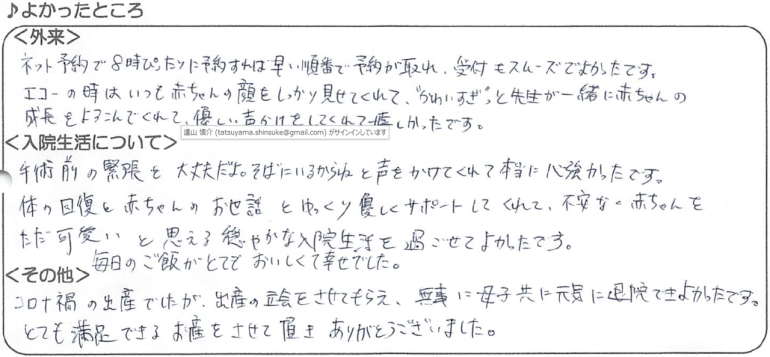 ♪よかったところ
＜外来＞
ネット予約で8時ぴったりに予約すれば早い順番で予約が取れ、受付もスムーズでよかったです。
エコーの時はいつも赤ちゃんの顔をしっかり見せてくれて、“かわいすぎっ”と先生が一緒に赤ちゃんの
成長をよろこんでくれて、優しい声かけをしてくれて嬉しかったです。
遠山 慎介 (tatsuyama.shinsuke@gmail.com) がサインインしています
＜入院生活について＞
手術前の緊張を大丈夫だよ。そばにいるからねと声をかけてくれて本当に心強かったです。
体の回復と赤ちゃんのお世話とゆっくり優しくサポートしてくれて、不安なく赤ちゃんを
ただ可愛いと思える穏やかな入院生活を過ごせてよかったです。
毎日のご飯がとてもおいしくて幸せでした。
＜その他＞
コロナ禍の出産でしたが、出産の立会をさせてもらえ、無事に母子共に元気に退院できよかったです。
とても満足できるお産をさせて頂きありがとうございました。